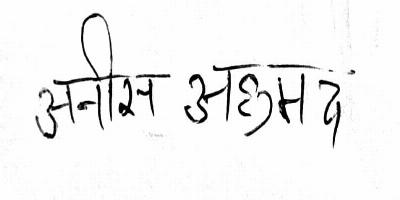 अनीस अहमद